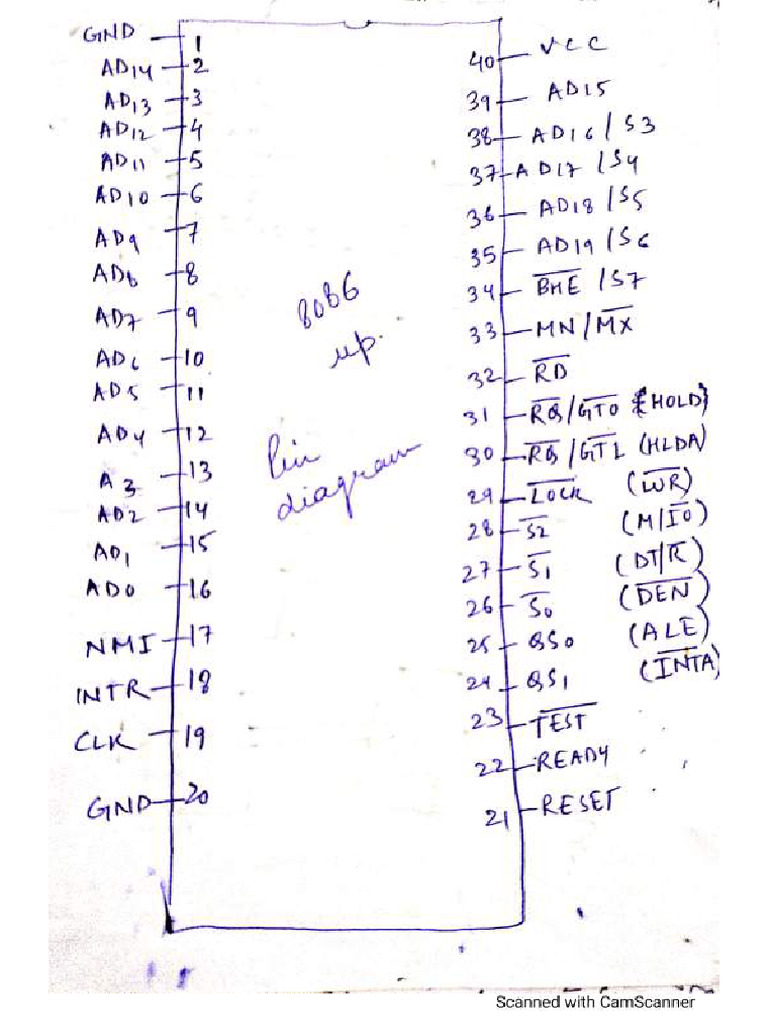 GND 1
AD14 2
AD13 3
AD12 4
AD11 5
AD10 6
AD9 7
AD8 8
AD7 9
AD6 10
AD5 11
AD4 12
A3 13
AD2 14
AD1 15
AD0 16
NMI 17
INTR 18
CLK 19
GND 20
8086
up.
Pin
diagram
40 VCC
39 AD15
38 AD16/S3
37 AD17/S4
36 AD18/S5
35 AD19/S6
34 B̅H̅E̅/S7
33 MN/M̅X̅
32 R̅D̅
31 R̅Q̅/G̅T̅0 {HOLD}
30 R̅Q̅/G̅T̅1 (HLDA)
29 L̅O̅C̅K̅ (W̅R̅)
28 S̅2̅ (M/I̅O̅)
27 S̅1̅ (DT/R̅)
26 S̅0̅ (D̅E̅N̅)
25 QS0 (ALE)
24 QS1 (I̅N̅T̅A̅)
23 T̅E̅S̅T̅
22 READY
21 RESET
Scanned with CamScanner